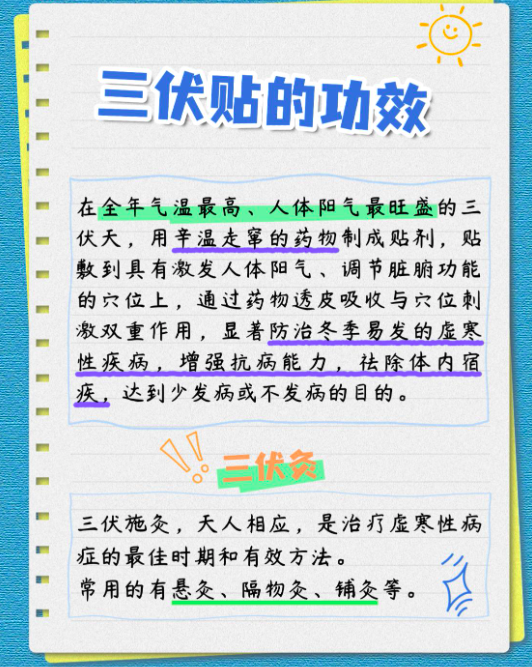 三伏贴的功效
在全年气温最高、人体阳气最旺盛的三
伏天，用辛温走窜的药物制成贴剂，贴
敷到具有激发人体阳气、调节脏腑功能
的穴位上，通过药物透皮吸收与穴位刺
激双重作用，显著防治冬季易发的虚寒
性疾病，增强抗病能力，祛除体内宿
疾，达到少发病或不发病的目的。
三伏灸
三伏施灸，天人相应，是治疗虚寒性病
症的最佳时期和有效方法。
常用的有悬灸、隔物灸、铺灸等。